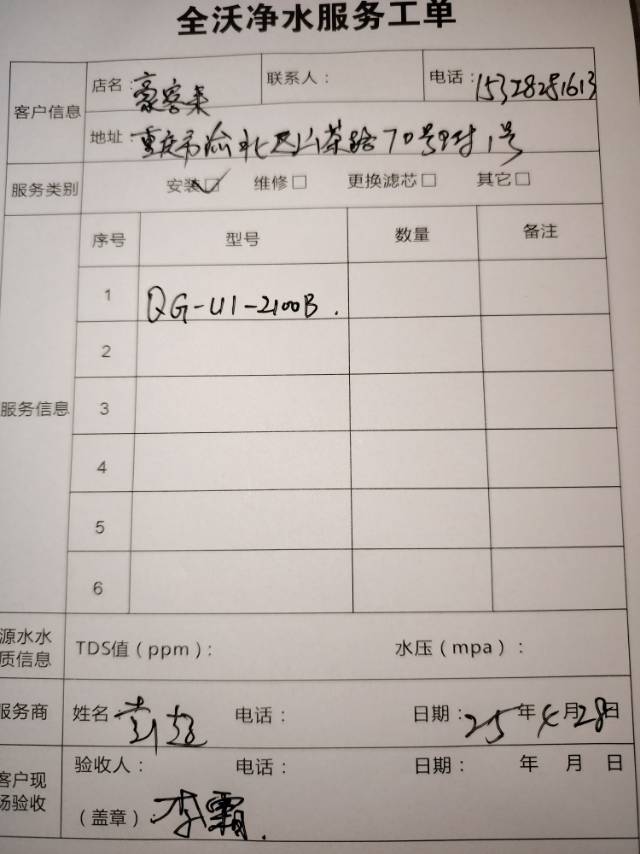 全沃净水服务工单
客户信息 店名：豪客来 联系人： 电话：15328281613
地址：重庆市渝北区山茶路70号附1号
服务类别 安装☑ 维修□ 更换滤芯□ 其它□
序号 型号 数量 备注
1 QG-U1-2100B.
2
服务信息 3
4
5
6
源水水质信息 TDS值（ppm）： 水压（mpa）：
服务商 姓名 电话： 日期：25年4月28日
客户现场验收 验收人： 电话： 日期： 年 月 日
（盖章） 李霜.